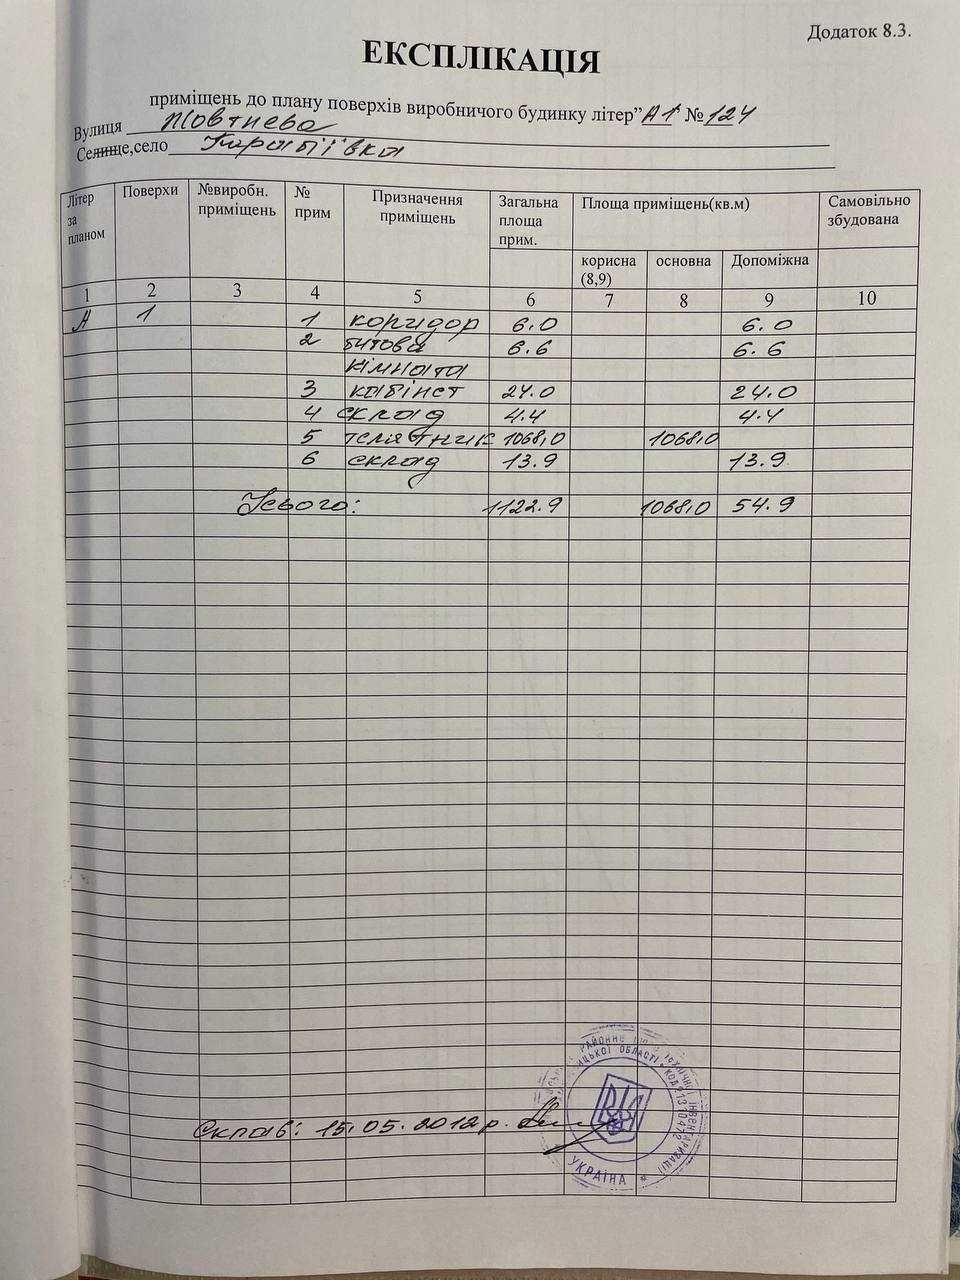 Додаток 8.3.
ЕКСПЛІКАЦІЯ
приміщень до плану поверхів виробничого будинку літер"А1 № 124
Вулиця Жовтнева
Селище,село Карабіївка
Літер за планом Поверхи №виробн. приміщень № прим Призначення приміщень Загальна площа прим. Площа приміщень(кв.м) Самовільно збудована
корисна (8,9) основна Допоміжна
1 2 3 4 5 6 7 8 9 10
А 1 1 коридор 6.0 6.0
2 битова 6.6 6.6
кімната
3 кабінет 24.0 24.0
4 склад 4.4 4.4
5 телятник 1068,0 1068,0
6 склад 13.9 13.9
Усього: 1122.9 1068,0 54.9
Склав: 15.05.2012р.
РАЙОННЕ ТЕХНІЧНОЇ ІНВЕНТАРИЗАЦІЇ
ОБЛАСТІ * КОД
УКРАЇНА *